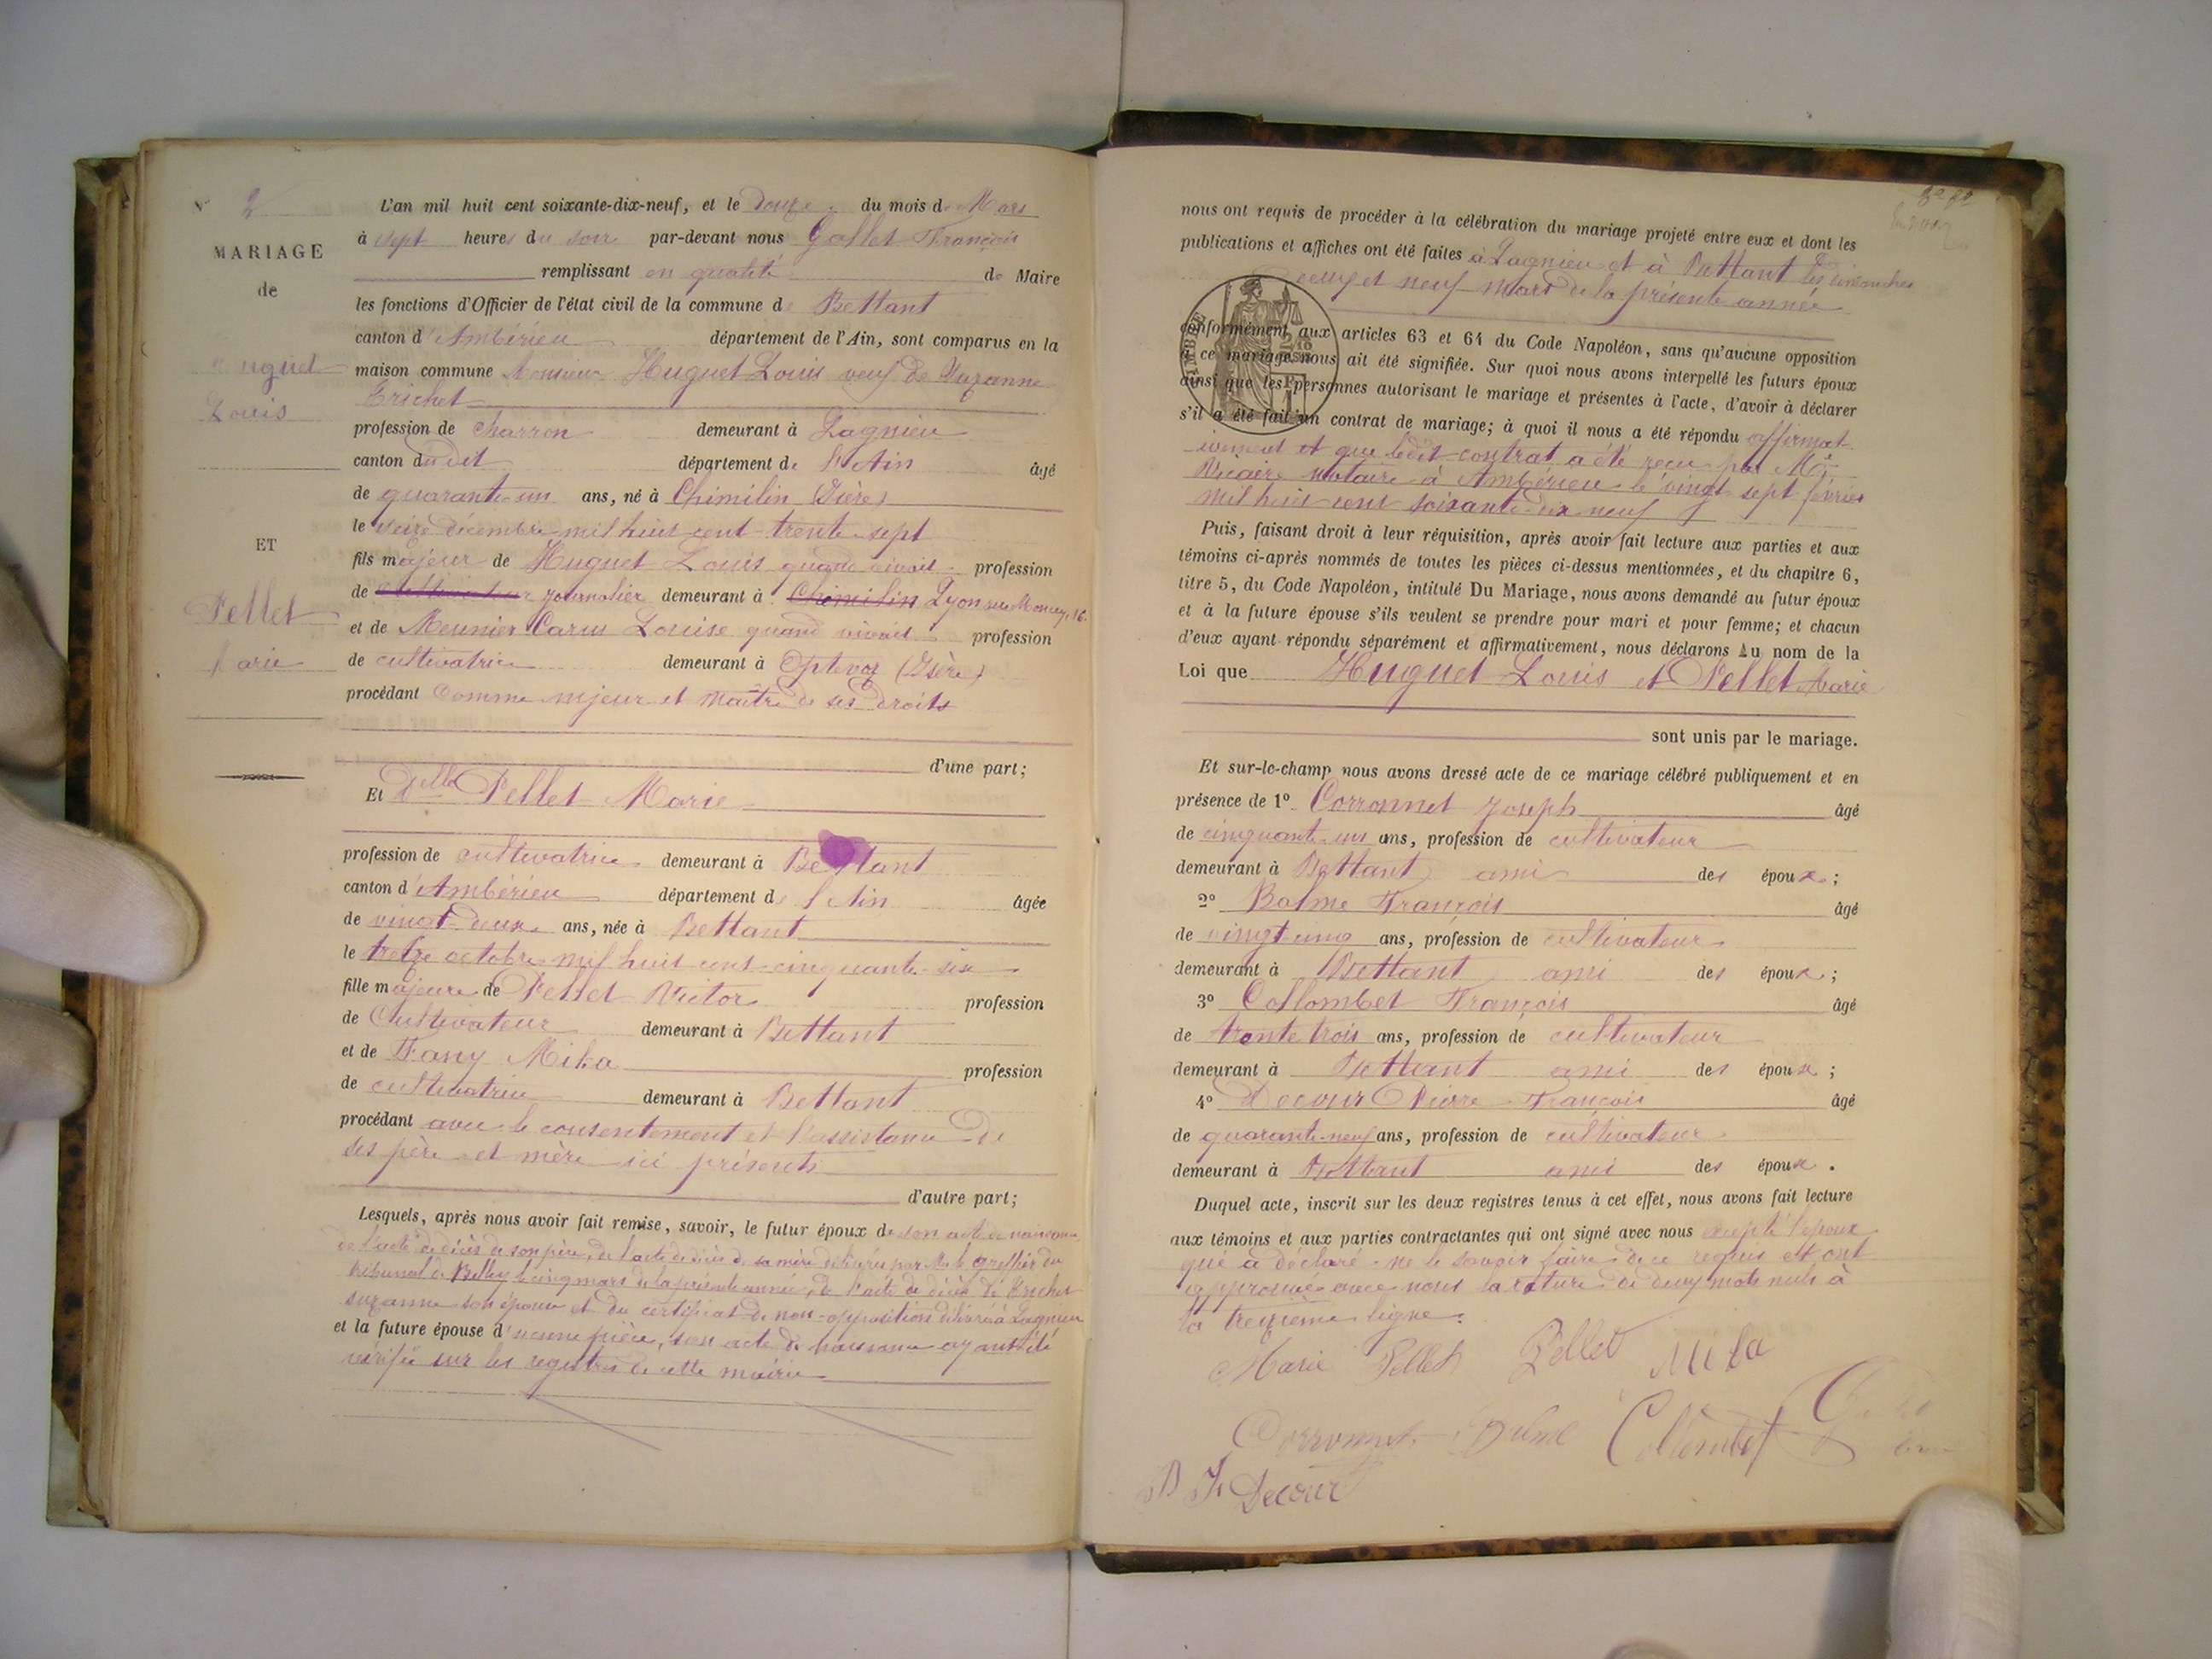 N° 2
MARIAGE
de
Huguet
Louis
ET
Pellet
Marie
L'an mil huit cent soixante-dix-neuf, et le douze du mois de Mars
à sept heures du soir par-devant nous Gallet François
remplissant en qualité de Maire
les fonctions d'Officier de l'état civil de la commune de Bettant
canton d'Ambérieu département de l'Ain, sont comparus en la
maison commune Monsieur Huguet Louis veuf de Suzanne
Trichet
profession de charron demeurant à Lagnieu
canton dudit département de l'Ain âgé
de quarante-un ans, né à Chimilin (Isère)
le seize décembre mil huit cent trente-sept
fils majeur de Huguet Louis quand vivait profession
de cultivateur journalier demeurant à Chimilin Lyon rue Moncey, 16
et de Meunier Carus Louise quand vivait profession
de cultivatrice demeurant à Optevoz (Isère)
procédant comme mjeur et maître de ses droits
d'une part;
Et Delle Pellet Marie
profession de cultivatrice demeurant à Bettant
canton d'Ambérieu département de l'Ain âgée
de vingt-deux ans, née à Bettant
le treize octobre mil huit cent cinquante-six
fille majeure de Pellet Victor profession
de Cultivateur demeurant à Bettant
et de Fany Mila profession
de cultivatrice demeurant à Bettant
procédant avec le consentement et l'assistance de
ses père et mère ici présents
d'autre part;
Lesquels, après nous avoir fait remise, savoir, le futur époux de son acte de naissance
de l'acte de décès de son père, de l'acte de décès de sa mère délivrés par Mr le greffier du
tribunal de Belley le cinq mars de la présente année, de l'acte de décès de Trichet
suzanne son épouse et du certificat de non-opposition délivré à Lagnieu
et la future épouse d'aucune pièce, son acte de naissance ayant été
vérifié sur les registres de cette mairie
nous ont requis de procéder à la célébration du mariage projeté entre eux et dont les
publications et affiches ont été faites à Lagnieu et à Bettant les dimanches
deux et neuf mars de la présente année
conformément aux articles 63 et 64 du Code Napoléon, sans qu'aucune opposition
à ce mariage nous ait été signifiée. Sur quoi nous avons interpellé les futurs époux
ainsi que les personnes autorisant le mariage et présentes à l'acte, d'avoir à déclarer
s'il a été fait un contrat de mariage; à quoi il nous a été répondu affirmat
ivement et que ledit contrat a été reçu par Me
notaire à Ambérieu le vingt-sept février
mil huit cent soixante-dix neuf
Puis, faisant droit à leur réquisition, après avoir fait lecture aux parties et aux
témoins ci-après nommés de toutes les pièces ci-dessus mentionnées, et du chapitre 6,
titre 5, du Code Napoléon, intitulé Du Mariage, nous avons demandé au futur époux
et à la future épouse s'ils veulent se prendre pour mari et pour femme; et chacun
d'eux ayant répondu séparément et affirmativement, nous déclarons Au nom de la
Loi que Huguet Louis et Pellet Marie
sont unis par le mariage.
Et sur-le-champ nous avons dressé acte de ce mariage célébré publiquement et en
présence de 1° Corronnet Joseph âgé
de cinquante-un ans, profession de cultivateur
demeurant à Bettant ami des époux;
2° Balme François âgé
de vingt-cinq ans, profession de cultivateur
demeurant à Bettant ami des époux;
3° Collombet François âgé
de trente trois ans, profession de cultivateur
demeurant à Bettant ami des époux;
4° Decour Pierre François âgé
de quarante-neuf ans, profession de cultivateur
demeurant à Bettant ami des époux.
Duquel acte, inscrit sur les deux registres tenus à cet effet, nous avons fait lecture
aux témoins et aux parties contractantes qui ont signé avec nous excepté l'époux
qui a déclaré ne le savoir faire de ce requis et ont
approuvé avec nous la rature de deux mots nuls à
la treizième ligne.
Marie Pellet Pellet Mila
Corronnet Balme Collombet
P F Decour